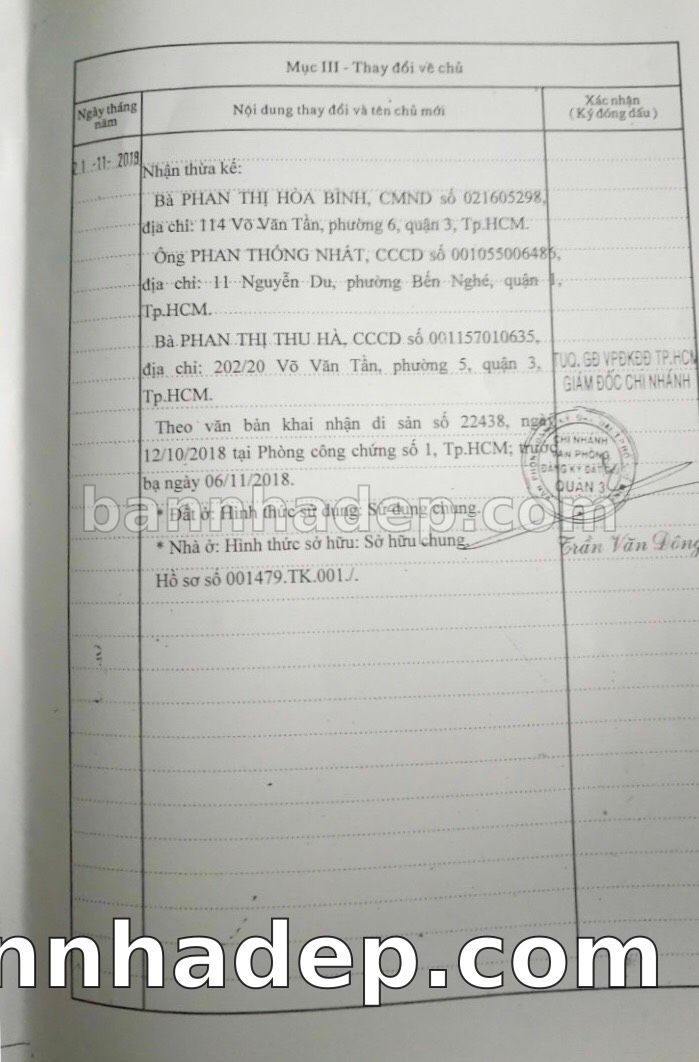 Mục III - Thay đổi về chủ
Ngày tháng năm
Nội dung thay đổi và tên chủ mới
Xác nhận
(Ký đóng dấu)
21 -11- 2018
Nhận thừa kế:
Bà PHAN THỊ HÒA BÌNH, CMND số 021605298,
địa chỉ: 114 Võ Văn Tần, phường 6, quận 3, Tp.HCM.
Ông PHAN THỐNG NHẤT, CCCD số 001055006486,
địa chỉ: 11 Nguyễn Du, phường Bến Nghé, quận 1,
Tp.HCM.
Bà PHAN THỊ THU HÀ, CCCD số 001157010635,
địa chỉ: 202/20 Võ Văn Tần, phường 5, quận 3,
Tp.HCM.
TUQ. GĐ VPĐKĐĐ TP.HCM
GIÁM ĐỐC CHI NHÁNH
Theo văn bản khai nhận di sản số 22438, ngày
12/10/2018 tại Phòng công chứng số 1, Tp.HCM; trước
bạ ngày 06/11/2018.
CHI NHÁNH
VĂN PHÒNG
ĐĂNG KÝ ĐẤT ĐAI
QUẬN 3
bannhadep.com
* Đất ở: Hình thức sử dụng: Sử dụng chung.
* Nhà ở: Hình thức sở hữu: Sở hữu chung.
Trần Văn Đông
Hồ sơ số 001479.TK.001./.
nnhadep.com